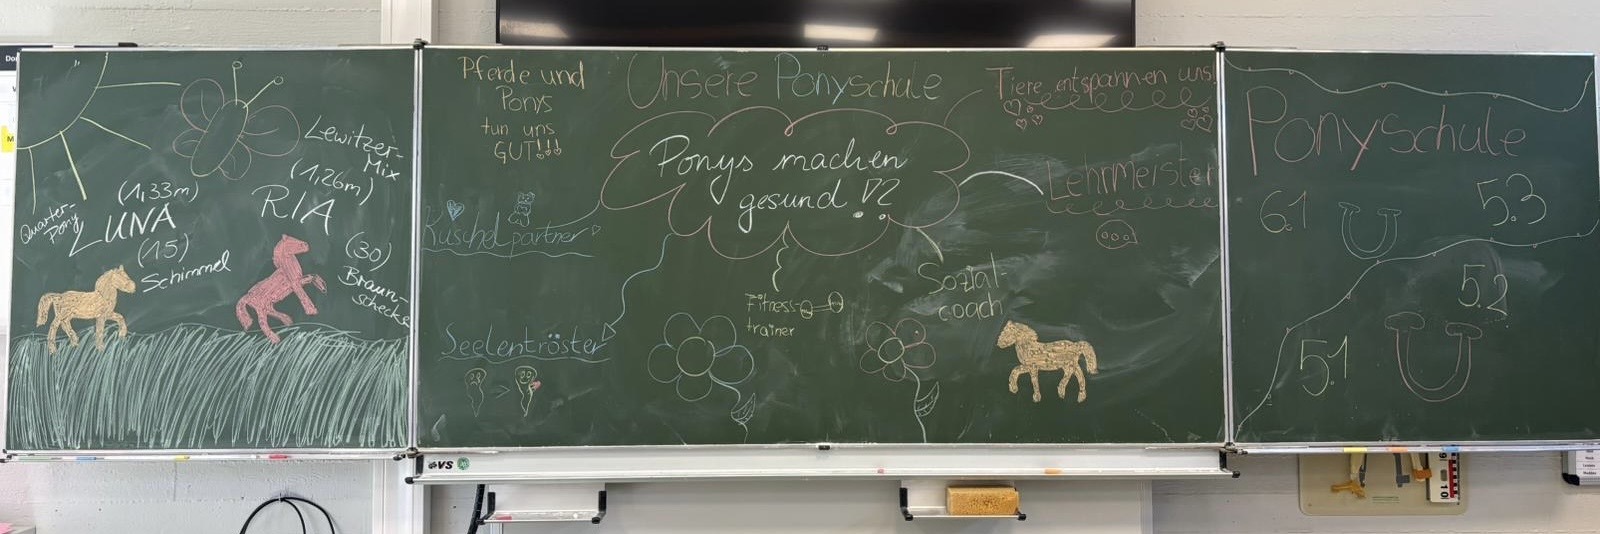 Lewitzer-
Mix
(1,33m)
(1,26m)
Quarter-
Pony
LUNA
RIA
(15)
(30)
Schimmel
Braun-
schecke
Pferde und
Ponys
tun uns
GUT!!!
Unsere Ponyschule
Tiere entspannen uns!
Ponys machen
gesund!?
Lehrmeister
Kuschelpartner
Sozial-
coach
Fitness-
trainer
Seelentröster
VS
Ponyschule
6.1
5.3
5.2
5.1